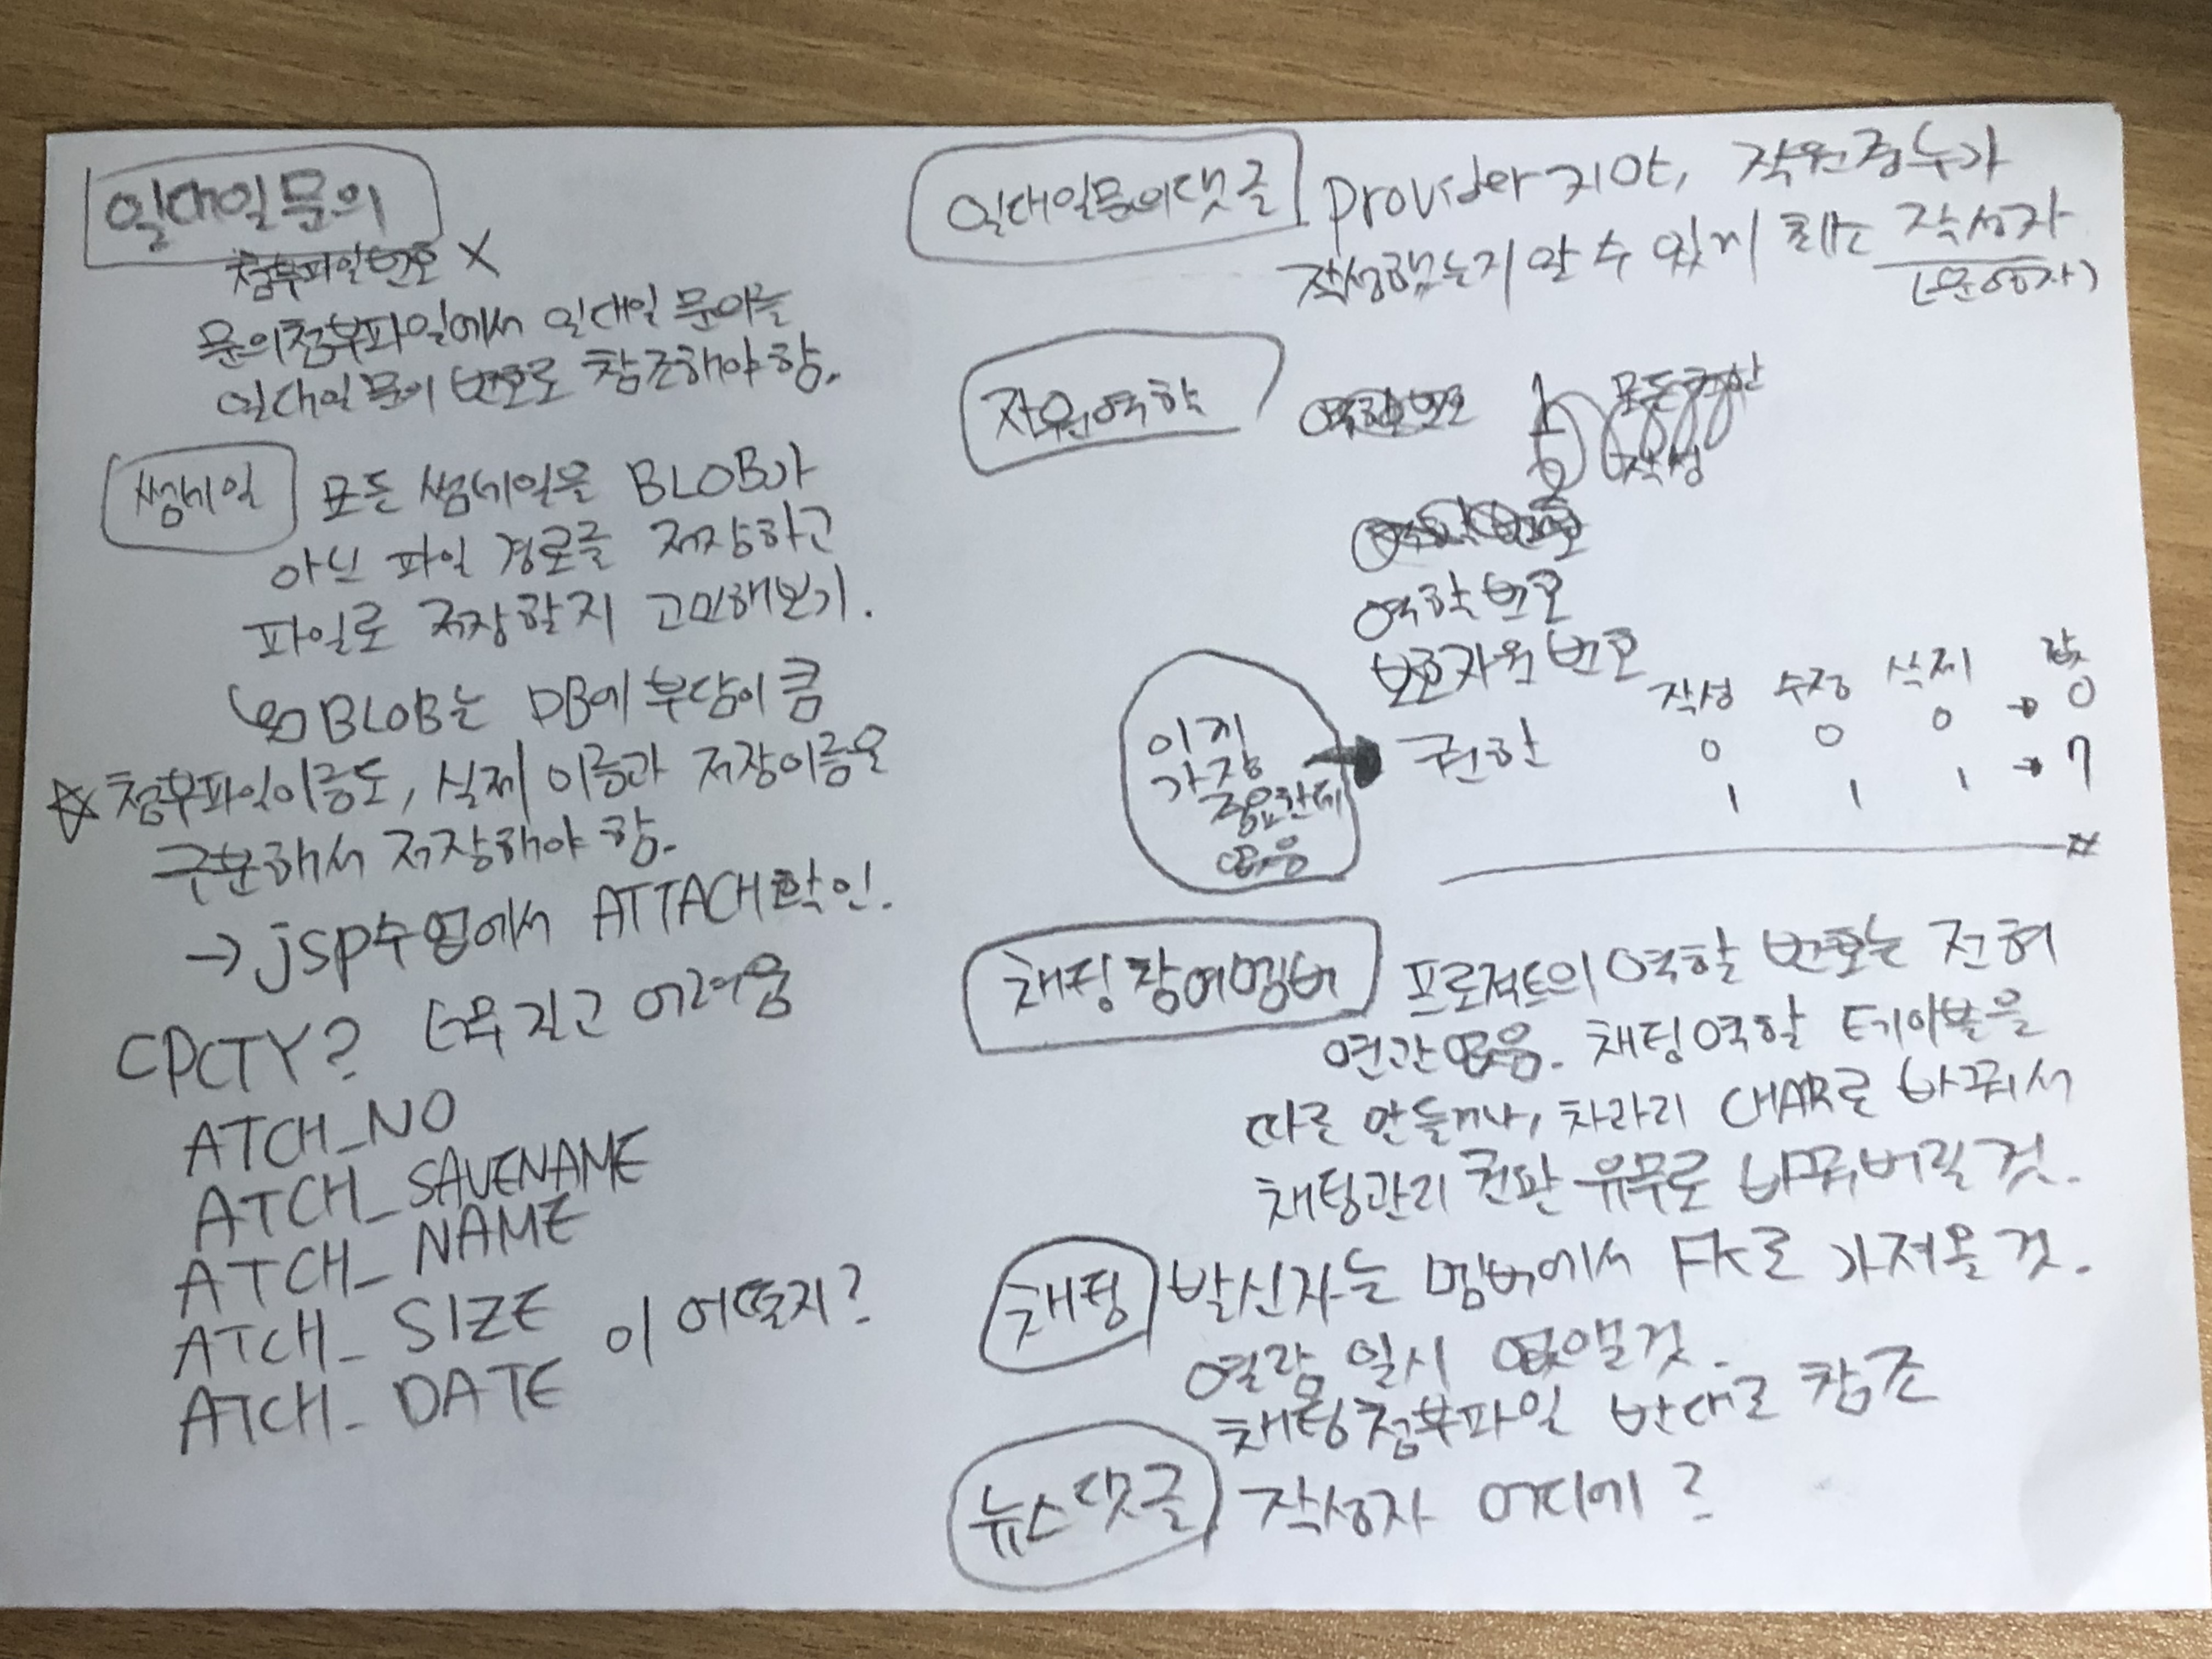 일대일문의
첨부파일번호 X
문의첨부파일에서 일대일 문의를
일대일문의 번호로 참조해야함.
썸네일 모든 썸네일을 BLOB가
아닌 파일 경로를 저장하고
파일로 저장할지 고민해보기.
BLOB는 DB에 부담이 큼
☆첨부파일이름도, 실제 이름과 저장이름을
구분해서 저장해야 함.
→ jsp수업에서 ATTACH확인.
CPCTY? 너무 길고 어려움
ATCH_NO
ATCH_SAVENAME
ATCH_NAME
ATCH_SIZE 이 어떨지?
ATCH_DATE
일대일문의댓글 provider지만, 직원중누가
작성했는지 알 수 있게 최소 작성자
(운영자)
자원역할 역할번호 1
2 작성
역할번호
보호자원 번호
작성 수정 삭제 값
권한 0 0 0 → 0
1 1 1 → 7
이게
가장
중요한데
없음
채팅참여멤버 프로젝트의 역할 번호는 전혀
연관없음. 채팅역할 테이블을
따로 만들거나, 차라리 CHAR로 바꿔서
채팅관리 권한 유무로 바꿔버릴 것.
채팅 발신자는 멤버에서 FK로 가져올 것.
열람 일시 없앨것.
채팅첨부파일 반대로 참조
뉴스댓글 작성자 어디에?